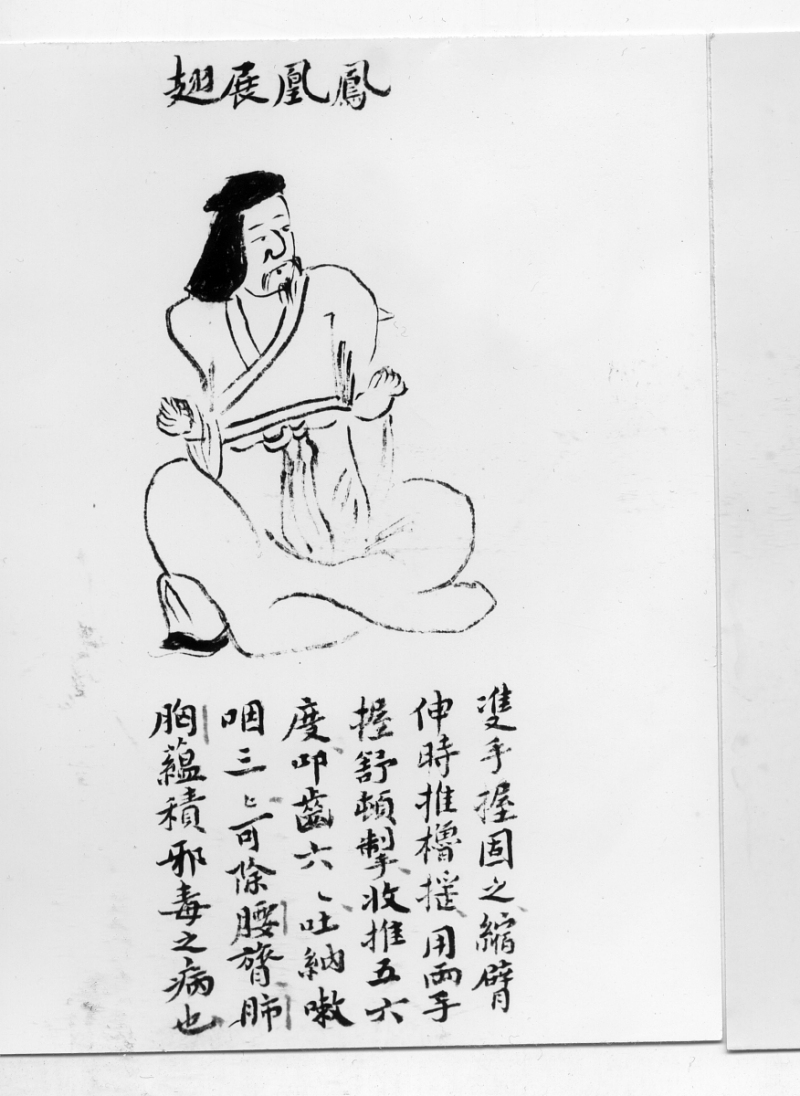 鳳凰展翅
雙手握固之縮臂
伸時推櫓摇用両手
握舒頓掣收推五六
度叩齒六〻吐納嗽
咽三〻可除腰膂肺
胸蘊積邪毒之病也